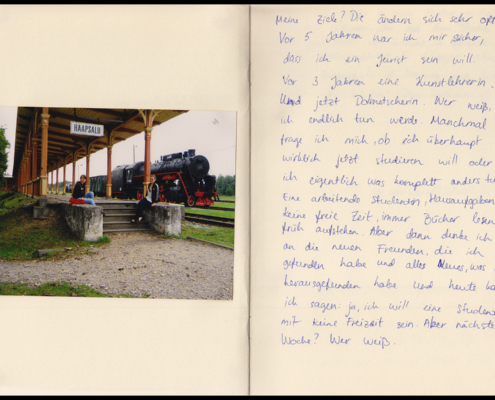 HAAPSALU
Meine Ziele? Die ändern sich sehr oft
Vor 5 Jahren war ich mir sicher,
das ich ein Jurist sein will.
Vor 3 Jahren eine Kunstlehrerin.
Und jetzt Dolmetscherin. Wer weiß,
ich endlich tun werde. Manchmal
frage ich mich, ob ich überhaupt
wirklich jetzt studieren will oder
ich eigentlich was komplett anders
Eine arbeitende Studentin, Hausaufgaben
keine freie Zeit, immer Bücher lesen
früh aufstehen Aber dann denke ich
an die neuen Freunden, die ich
gefunden habe und alles Neues, was
herausgefunden habe Und heute
ich sagen: ja, ich will eine
mit keine Freizeit sein. Aber
Woche? Wer weiß.